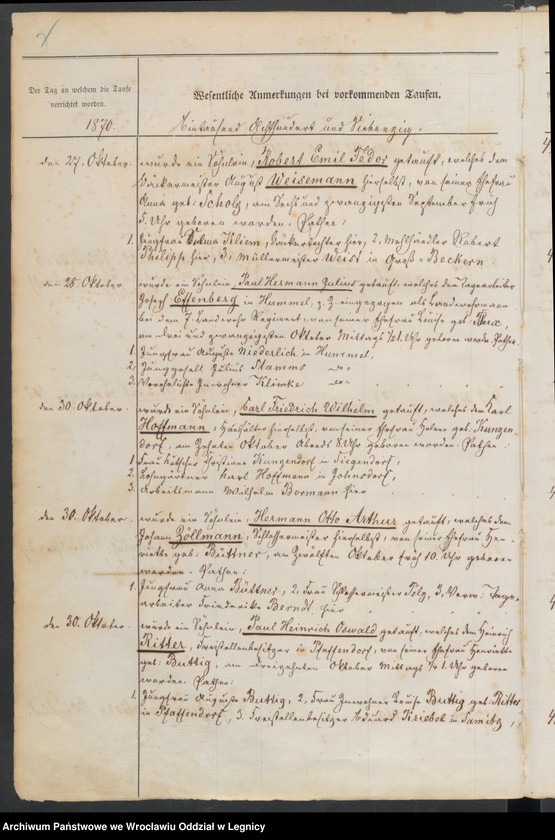 Der Tag an welchem die Taufe
verrichtet worden.
Wesentliche Anmerkungen bei vorkommenden Taufen.
1870.
Eintausend Achthundert und Siebenzig.
den 27. Oktober.
wurde ein Söhnlein, Robert Emil Fedor getauft, welches dem
Bäckermeister August Weisemann hierselbst, von seiner Ehefrau
Anna geb: Scholz, am Sechs und zwanzigsten September früh
5. Uhr geboren worden. Pathen:
1. Jungfrau Kliem, hier, 2, Mehlhändler Robert
Philipp hier, 3, Müllermeister Weist in Groß-Beckern.
den 28 Oktober
wurde ein Söhnlein, Paul Hermann Julius getauft, welches dem Tagearbeiter
Joseph Effenberg in Hummel, z. Z. eingezogen als Landwehrmann
bei dem 7. Landwehr Regiment, von seiner Ehefrau Louise geb:
am drei und zwanzigsten Oktober Mittags 1/2 1. Uhr geboren worden. Pathen
1. Jungfrau Auguste Niederlich in Hummel,
2. Junggesell Julius Stamms
3. Verehelichte Inwohner Klimke
den 30. Oktober.
wurde ein Söhnlein, Carl Friedrich Wilhelm getauft, welches dem Karl
Hoffmann, Haushälter hierselbst, von seiner Ehefrau Helene geb: Kungen-
dorf, am Zehnten Oktober Abends 8. Uhr geboren worden. Pathen
1. Frau Kutscher Christiane Kungendorf in Tiegendorf,
2. Lohngärtner Karl Hoffmann in Johnsdorf,
3. Arbeitsmann Wilhelm Bormann hier
den 30. Oktober.
wurde ein Söhnlein, Hermann Otto Arthur getauft, welches dem
Johann Zöllmann, Schlossermeister hierselbst, von seiner Ehefrau Hen-
riette geb: Büttner, am Zwölften Oktober früh 10. Uhr geboren
worden. Pathen:
1. Jungfrau Anna Büttner, 2. Frau Schlossermeister 3. Verw: Tage-
arbeiter Friederike Berndt hier
den 30. Oktober.
wurde ein Söhnlein, Paul Heinrich Oswald getauft, welches dem Heinrich
Ritter, Freistellenbesitzer in Pfaffendorf, von seiner Ehefrau Henriette
geb: Buttig, am dreizehnten Oktober Mittags 1/2 1. Uhr geboren
worden. Pathen:
1. Jungfrau Auguste Buttig, 2, Frau Inwohner Louise Buttig geb: Ritter
in Pfaffendorf, 3. Freistellenbesitzer Eduard Kriebel in
Archiwum Państwowe we Wrocławiu Oddział w Legnicy